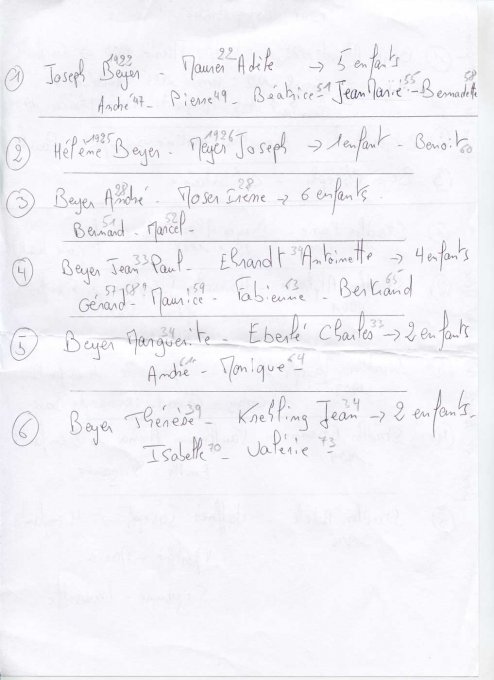 ① Joseph Beyer 1922 - Maurer 22 Adèle → 5 enfants
André 47 - Pierre 49 - Béatrice 51 - Jean Marie 55 - Bernadette 58
② Hélène 1925 Beyer - Meyer 1926 Joseph → 1 enfant - Benoit 60
③ Beyer André 28 - Moser Irène 28 → 6 enfants.
Bernard 51 - Marcel 52 -
④ Beyer Jean 33 Paul - Ehrardt 34 Antoinette → 4 enfants
Gérard 57 - Maurice 59 - Fabienne 63 - Bertrand 65
⑤ Beyer Marguerite 34 - Eberlé Charles 33 → 2 enfants
André 61 - Monique 64
⑥ Beyer Thérèse 39 - Jean 34 → 2 enfants -
Isabelle 70 - Valérie 73